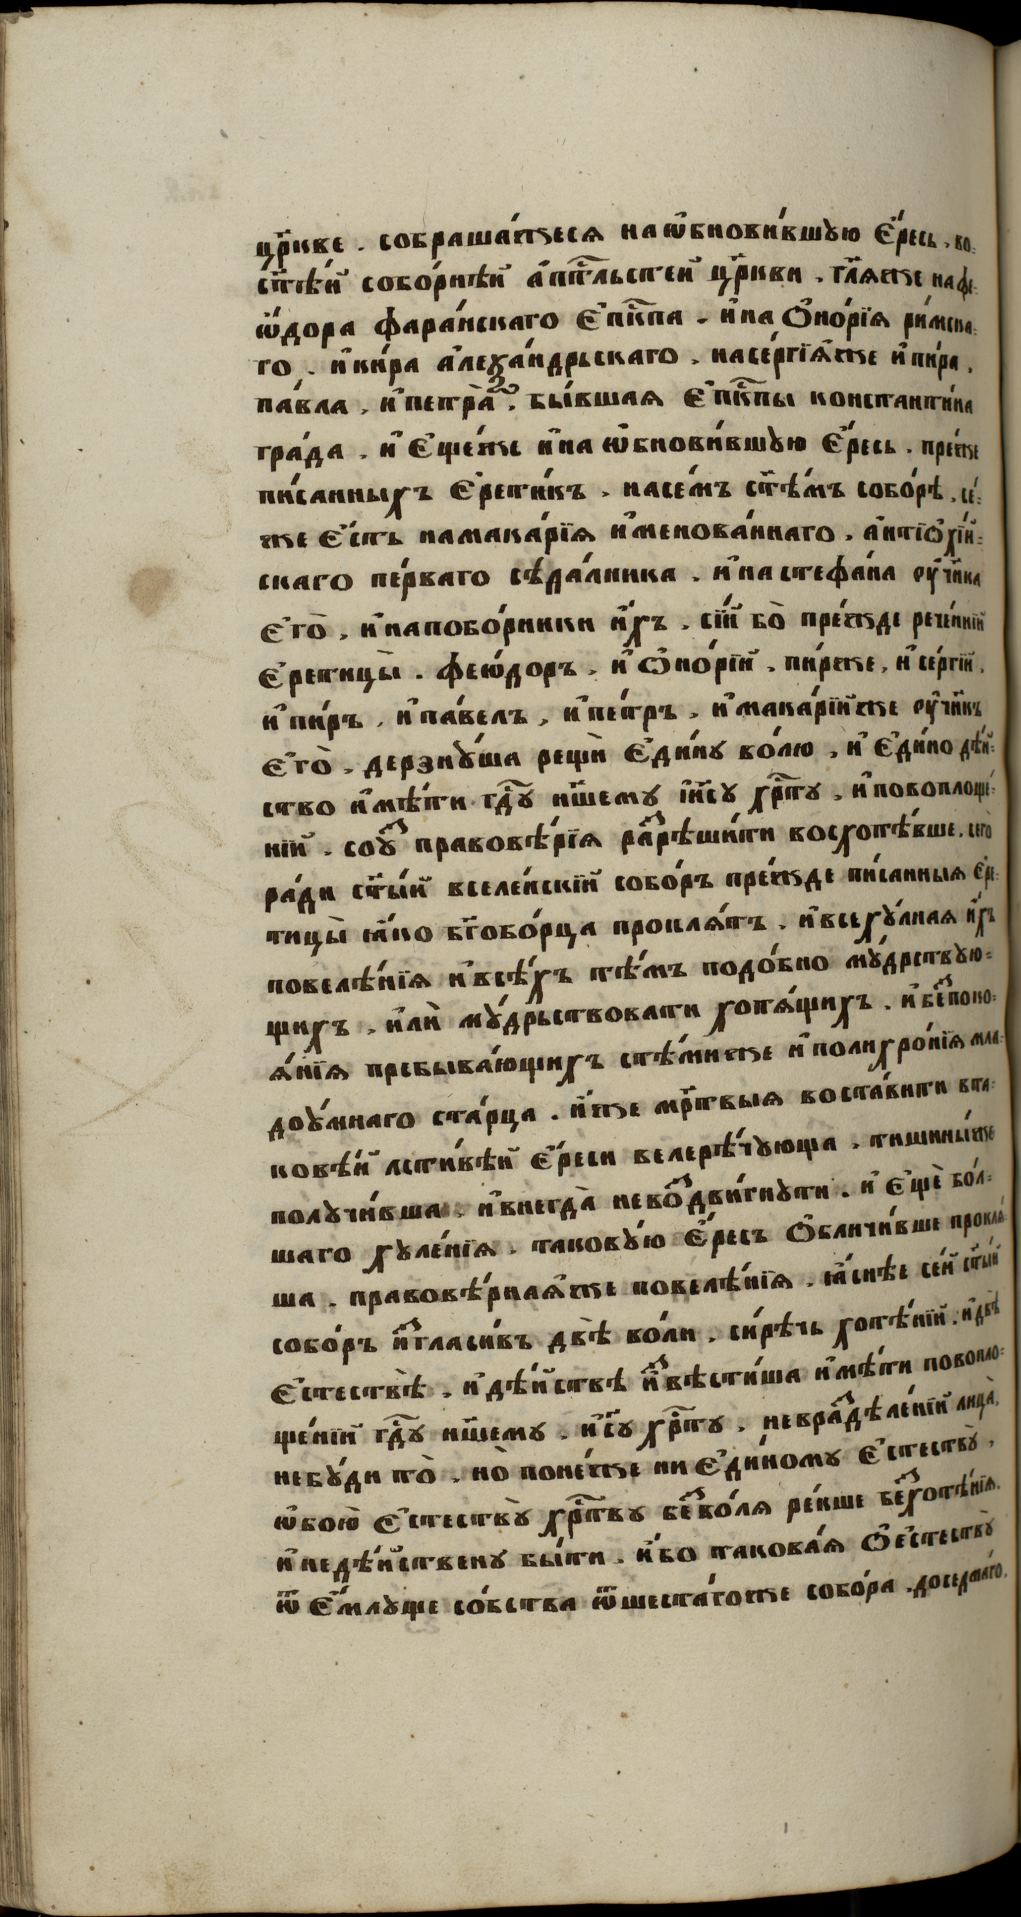 цр҃кве . собраша́жеся наѡ҆бнови́вшꙋю Є҆́ресь . во-
ст҃ѣ́й собо́рнѣй а҆пⷭ҇льстей цр҃кви . гл҃я́же на фе-
ѡ҆́дора фара́нскаго Є҆пⷭ҇кпа . и҆ на Ѻ҆но́рїя ри́мска-
го . и҆ ки́ра а҆леѯа́ндрьскаго . насе́ргїѧ́же и҆ пи́ра .
па́вла , и҆ петра̀ . бы́вшая Є҆пⷭ҇кпы констѧнти́на
гра́да . и҆ Є҆ще́же и҆ на ѡ҆бнови́вшꙋю Є҆́ресь . пре́же
пи́санныхъ Є҆рети́къ . насе́мъ ст҃ѣ́мъ собо́рѣ . се́-
же Є҆́сть намака́рїя и҆менова́ннаго , а҆нтїѻхі́й-
скаго пе́рваго сѣда́лника . и҆ на стефа́на ᲂу҆ч҃нка
Є҆го̀ . и҆ напобо́рники и҆́хъ . сі́й бо̀ пре́жде рече́ннїй
Є҆ретицы̀ . феѡ́доръ . и҆ Ѻ҆но́рїй . пи́рже , и҆ се́ргїй .
и҆ пи́ръ , и҆ па́велъ , и҆ пе́тръ . и҆ мака́рїйже ᲂу҆ч҃нкъ
Є҆го̀ . дерзнꙋ́ша рещѝ Є҆ди́нꙋ во́лю , и҆ Є҆ди́но дѣ́й-
ство и҆мѣ́ти гдⷭ҇ꙋ нш҃емꙋ і҆и҃сꙋ хрⷭ҇тꙋ , и҆ повоплоще́-
нїй . соꙋ҆ правовѣ́рїя разрѣши́ти восхотѣ́вше . сего̀
ра́ди ст҃ы́й вселе́нскїй собо́ръ пре́жде пи́санныя Є҆ре-
тицы̀ ꙗ҆́ко бг҃обо́рца прокля́тъ . и҆ всехꙋ́лная и҆́хъ
повелѣ́нїя и҆ всѣ́хъ тѣ́мъ подо́бно мꙋ́дрствꙋю-
щихъ . и҆лѝ мꙋ́дрьствовати хотя́щихъ . и҆ безпока-
я́нїя пребыва́ющихъ стѣ́миже и҆ полихро́нїя мла-
доꙋ́мнаго ста́рца . и҆́же мр҃твыя воста́вити вта-
ковѣ́й лсти́вѣй Є҆́реси велерѣ́чꙋюща . тишины́же
полꙋчи́вша . и҆ внегда̀ невоздви́гнꙋти . и҆ Є҆щѐ бо́л-
шаго хꙋле́нїя . таковꙋ́ю Є҆́ресь Ѻ҆бличи́вше прокля-
ша . правовѣ́рнаѧ́же повелѣ́нїя . ꙗ҆́снѣе се́й ст҃ы́й
собо́ръ и҆згласи́въ двѣ̀ во́ли . си́рѣчь хотѣ́нїй . и҆ двѣ̀
Є҆стествѣ̀ . и҆ дѣ́йствѣ и҆звѣсти́ша и҆мѣ́ти повопло-
ще́нїй гдⷭ҇ꙋ нш҃емꙋ . и҆і҃сꙋ хрⷭ҇тꙋ . невраздѣле́нїй лица̀ .
небꙋ́ди то̀ . но̀ поне́же ни Є҆ди́номꙋ Є҆стествꙋ̀ .
ѡ҆бою̀ Є҆стествꙋ̀ хрⷭ҇твꙋ безво́ля ре́кше безхотѣ́нїя .
и҆ недѣ́йственꙋ бы́ти . и҆́бо такова́я Ѻ҆естествꙋ̀
ѿ Є҆́млꙋще со́бства ѿшеста́гоже собо́ра . доседма́го .